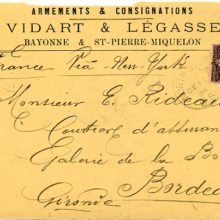 ARMEMENTS & CONSIGNATIONS
VIDART & LÉGASSE
BAYONNE & ST-PIERRE-MIQUELON
France Via New-York
Monsieur E. Rideau
Courtier d'assuran
Galerie de la Bo
Bordea
Gironde